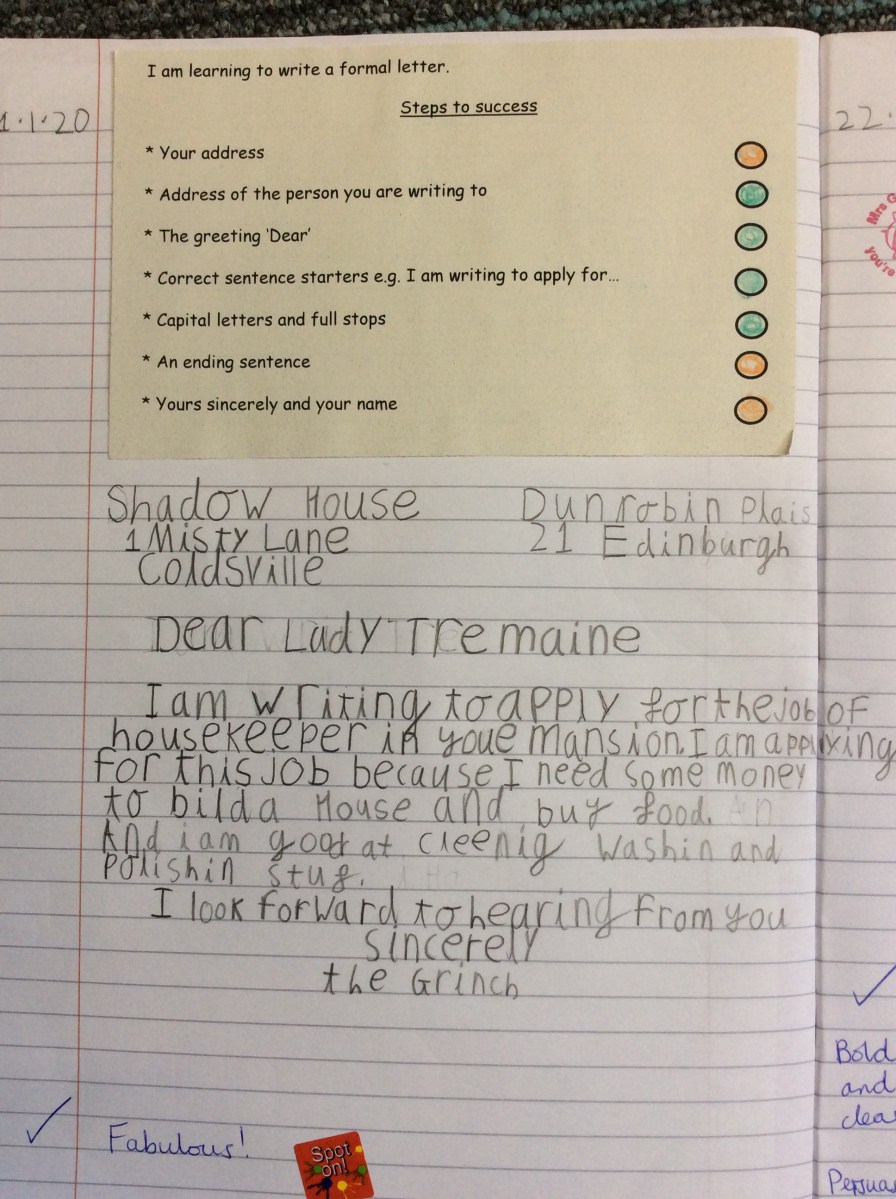 1.1.20
I am learning to write a formal letter.
Steps to success
* Your address
* Address of the person you are writing to
* The greeting 'Dear'
* Correct sentence starters e.g. I am writing to apply for...
* Capital letters and full stops
* An ending sentence
* Yours sincerely and your name
Shadow House
1 Misty Lane
Coldsville
Dunrobin Plais
21 Edinburgh
Dear Lady Tremaine
I am writing to apply for the job of
housekeeper in youe mansion. I am applying
for this job because I need some money
to bild a House and buy food.
And i am good at cleenig washin and
Polishin stuf.
I look forward to hearing from you
Sincerely
the Grinch
Fabulous!
Spot
on!
22.
Mrs G
you're
Bold
and
clea
Persua